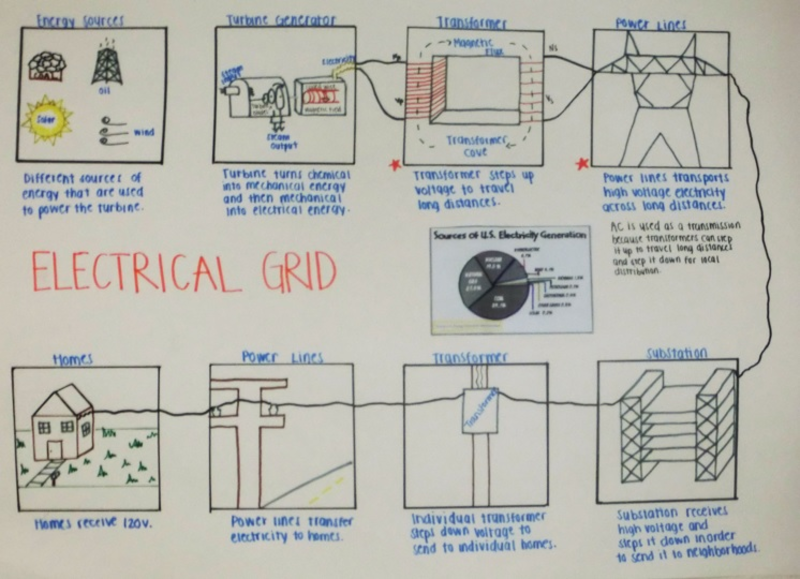 Energy Sources
COAL
Oil
Solar
Wind
Different sources of
energy that are used
to power the turbine.
Turbine Generator
Electricity
Steam
Output
Magnetic Field
Turbine turns chemical
into mechanical energy
and then mechanical
into electrical energy.
Transformer
Magnetic
Flux
Transformer
Core
Transformer steps up
voltage to travel
long distances.
Power Lines
Power lines transports
high voltage electricity
across long distances.
AC is used as a transmission
because transformers can step
it up to travel long distances
and step it down for local
distribution.
ELECTRICAL GRID
Sources of U.S. Electricity Generation
Homes
Homes receive 120v.
Power Lines
Power lines transfer
electricity to homes.
Transformer
Transformer
Individual transformer
steps down voltage to
send to individual homes.
Substation
Substation receives
high voltage and
steps it down inorder
to send it to neighborhoods.